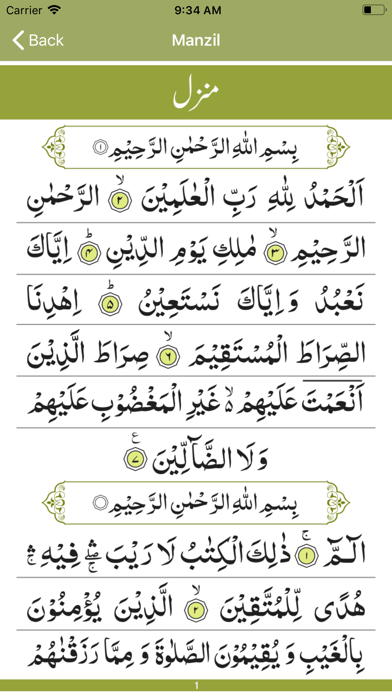 Carrier 9:34 AM
Back Manzil
منزل
بِسْمِ اللهِ الرَّحْمٰنِ الرَّحِيْمِ ۝۱
اَلْحَمْدُ لِلّٰهِ رَبِّ الْعٰلَمِيْنَ ۙ۝۲ الرَّحْمٰنِ
الرَّحِيْمِ ۙ۝۳ مٰلِكِ يَوْمِ الدِّيْنِ ؕ۝۴ اِيَّاكَ
نَعْبُدُ وَ اِيَّاكَ نَسْتَعِيْنُ ؕ۝۵ اِهْدِنَا
الصِّرَاطَ الْمُسْتَقِيْمَ ۙ۝۶ صِرَاطَ الَّذِيْنَ
اَنْعَمْتَ عَلَيْهِمْ ۙ۬ غَيْرِ الْمَغْضُوْبِ عَلَيْهِمْ
وَ لَا الضَّآلِّيْنَ ۝۷ ع
بِسْمِ اللهِ الرَّحْمٰنِ الرَّحِيْمِ ۝
الٓمّٓ ۚ۝۱ ذٰلِكَ الْكِتٰبُ لَا رَيْبَ ۛۖۚ فِيْهِ ۛۚ
هُدًى لِّلْمُتَّقِيْنَ ۙ۝۲ الَّذِيْنَ يُؤْمِنُوْنَ
بِالْغَيْبِ وَ يُقِيْمُوْنَ الصَّلٰوةَ وَ مِمَّا رَزَقْنٰهُمْ
1